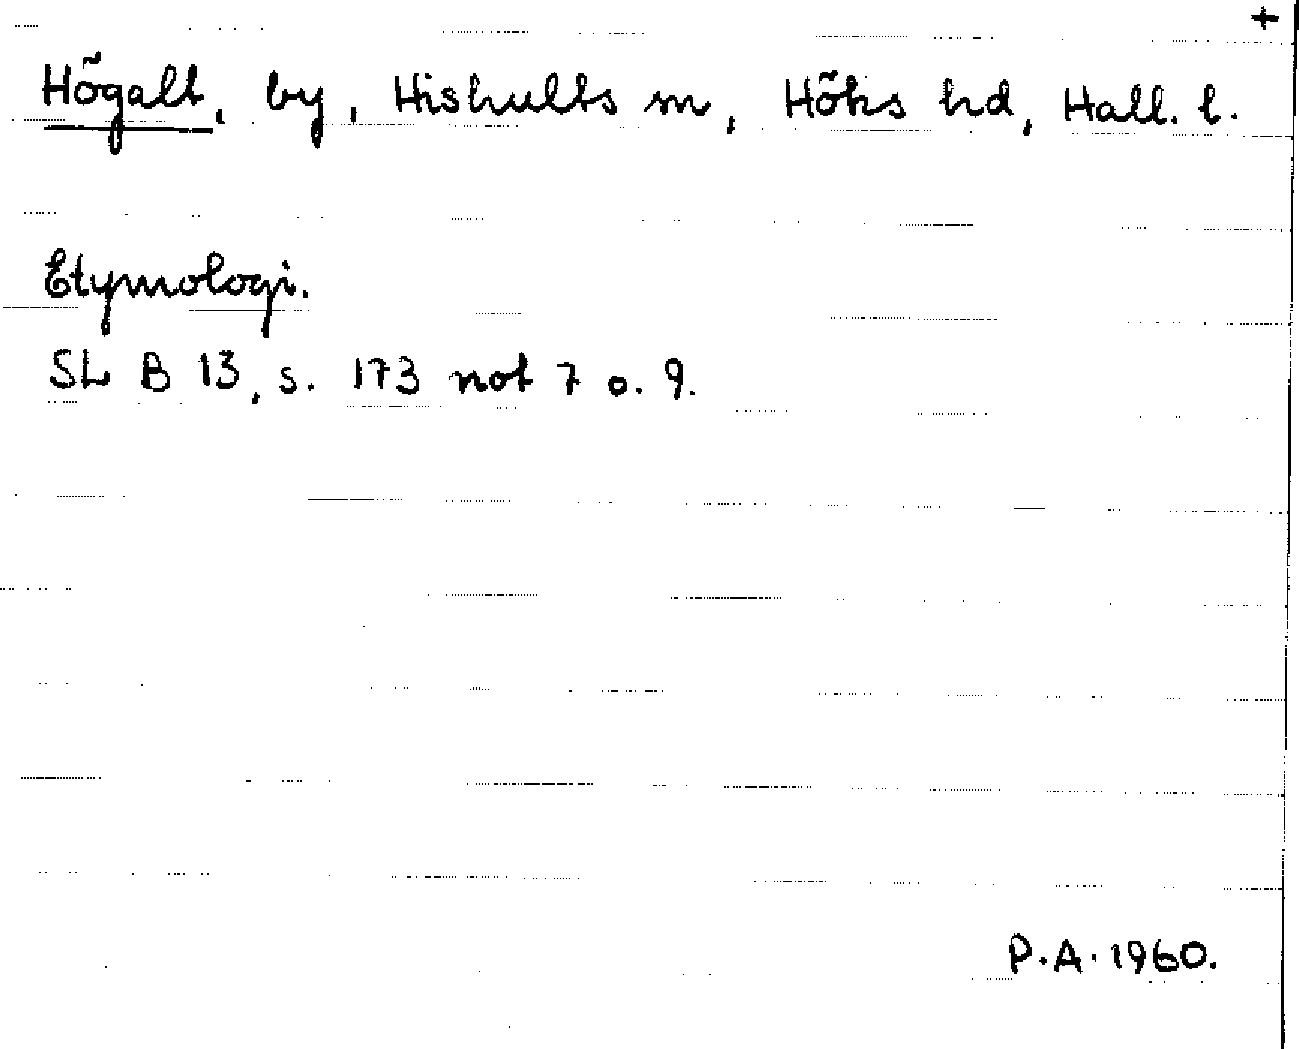 +
Högalt, by, Hishults sn, Höks hd, Hall. l.
Etymologi.
SL B 13, s. 173 not 7 o. 9.
P.A. 1960.